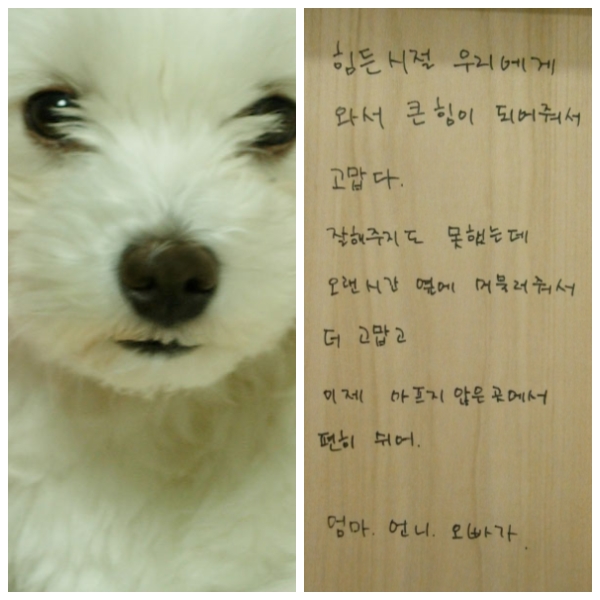 힘든시절 우리에게
와서 큰힘이 되어줘서
고맙다.
잘해주지도 못했는데
오랜시간 옆에 머물러줘서
더 고맙고
이제 아프지 않은곳에서
편히 쉬어.
엄마. 언니. 오빠가.